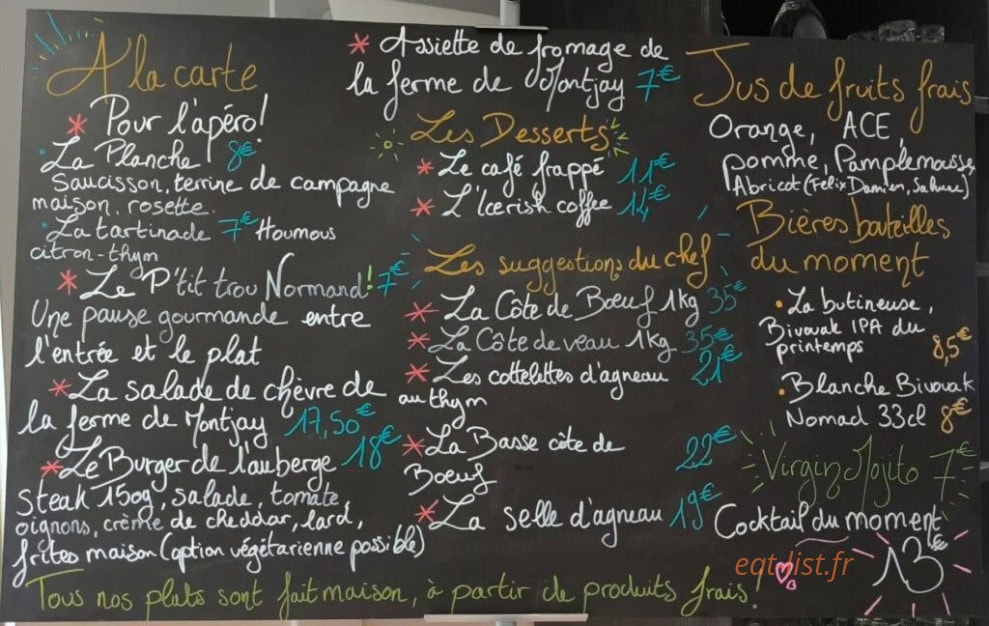 A la carte
* Pour l'apéro!
• La Planche 8€
Saucisson, terrine de campagne
maison, rosette.
• La tartinade 7€ Houmous
citron-thym
* Le P'tit trou Normand! 7€
Une pause gourmande entre
l'entrée et le plat
* La salade de chèvre de
la ferme de Montjay 17,50€
* Le Burger de l'auberge 18€
Steak 150g, salade, tomate,
oignons, crème de cheddar, lard,
frites maison (option végétarienne possible)
* Assiette de fromage de
la ferme de Montjay 7€
Les Desserts
* Le café frappé 11€
* L'Icerish coffee 14€
Les suggestions du chef
* La Côte de Bœuf 1kg 35€
* La Côte de veau 1kg 35€
* Les cottelettes d'agneau 21€
au thym
* La Basse côte de 22€
Boeuf
* La selle d'agneau 19€
Jus de fruits frais
Orange, ACE,
pomme, Pamplemousse,
Abricot (Felix Damien, Sahune)
Bières bouteilles
du moment
• La butineuse,
Bivouak IPA du
printemps 8,5€
• Blanche Bivouak
Nomad 33cl 8€
Virgin Mojito 7€
Cocktail du moment
13€
Tous nos plats sont fait maison, à partir de produits frais!
eat-list.fr